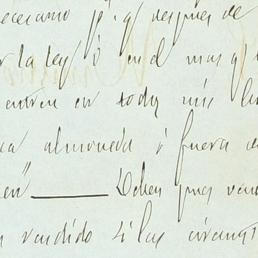 ecesario p. q. despues de
r la ley, ó en el mas q
entren en todos mis
almoneda ó fuera
en" ——— Deben pues
vendido si las